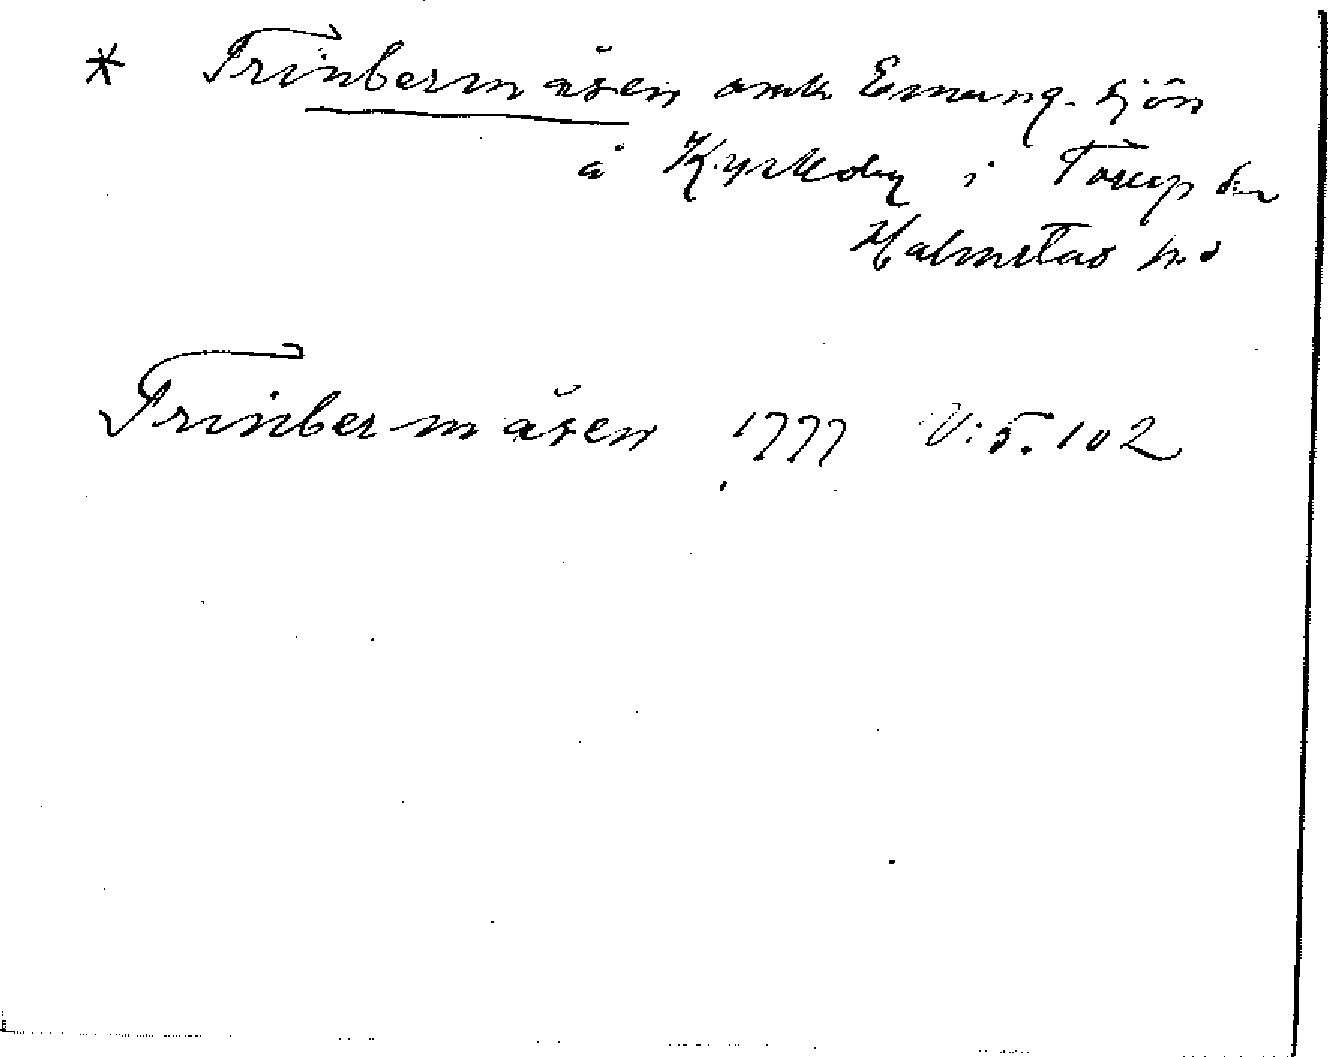 * Trinbermåsen omkr Emung-sjön
å Kyrkoby i Torup sn
Halmstad hd
Trinbermåsen 1777 V:5.102